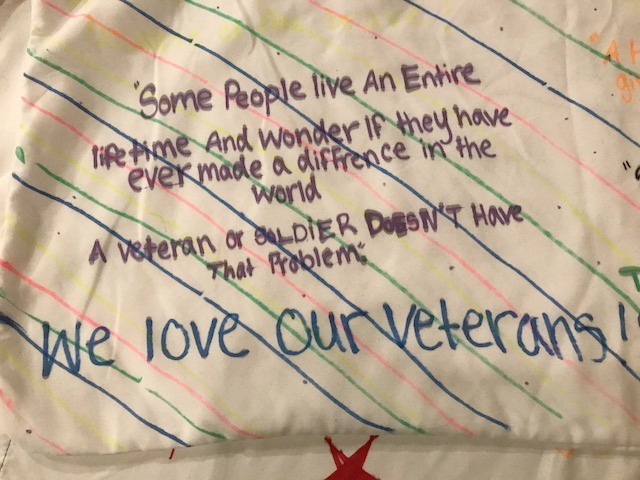 "Some People live An Entire
lifetime And Wonder If they have
ever made a diffrence in the
world
A veteran or SOLDiER DOESN'T Have
That Problem."
We love our veterans!